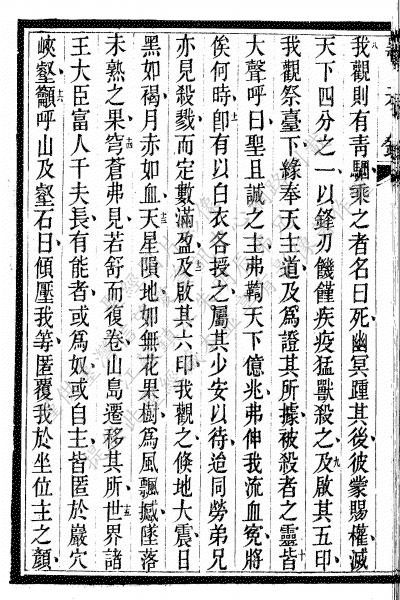 我觀則有青騧乘之者名曰死幽冥踵其後彼蒙賜權滅
天下四分之一以鋒刃饑饉疾疫猛獸殺之及啟其五印
我觀祭臺下緣奉天主道及為證其所據被殺者之靈皆
大聲呼曰聖且誠之主弗鞫天下億兆弗伸我流血寃將
俟何時卽有以白衣各授之屬其少安以待迨同勞弟兄
亦見殺戮而定數滿盈及啟其六印我觀之倏地大震日
黑如褐月赤如血天星隕地如無花果樹為風飄撼墜落
未熟之果穹蒼弗見若舒而復卷山島遷移其所世界諸
王大臣富人千夫長有能者或為奴或自主皆匿於巖穴
峽壑籲呼山及壑石曰傾壓我等匿覆我於坐位主之顏